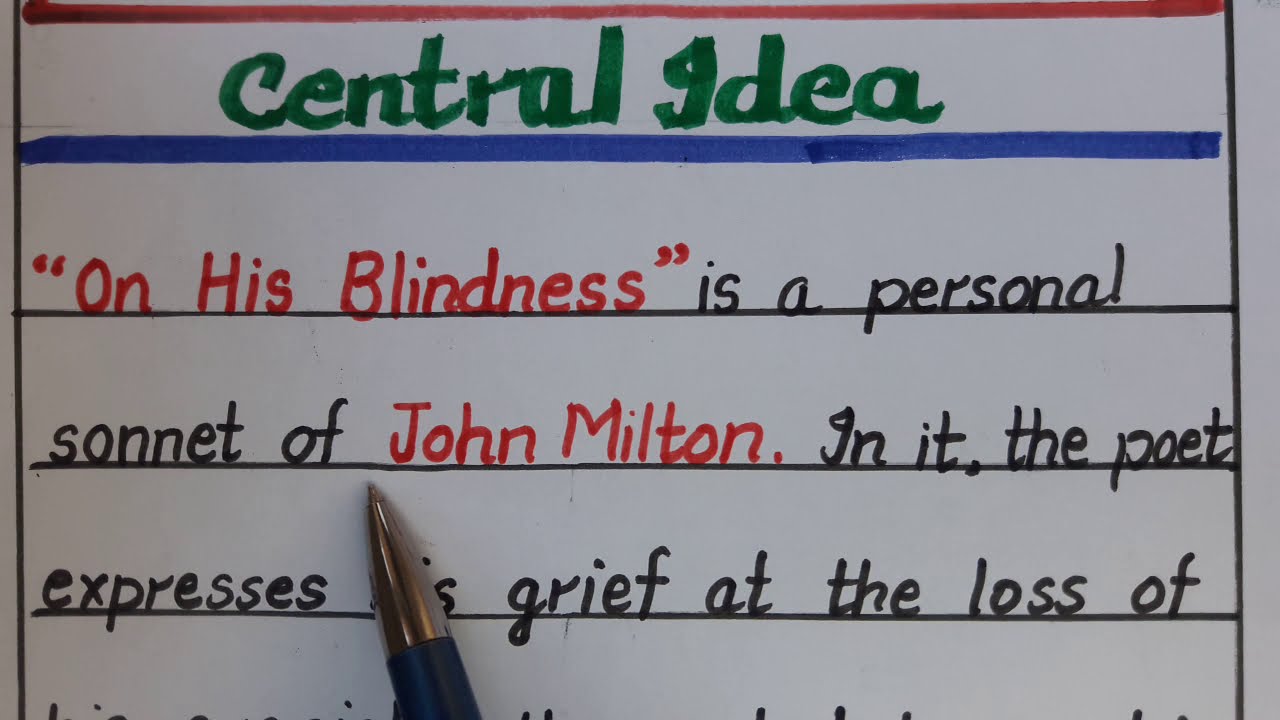 Central Idea
“On His Blindness” is a personal
sonnet of John Milton. In it, the poet
expresses is grief at the loss of
his